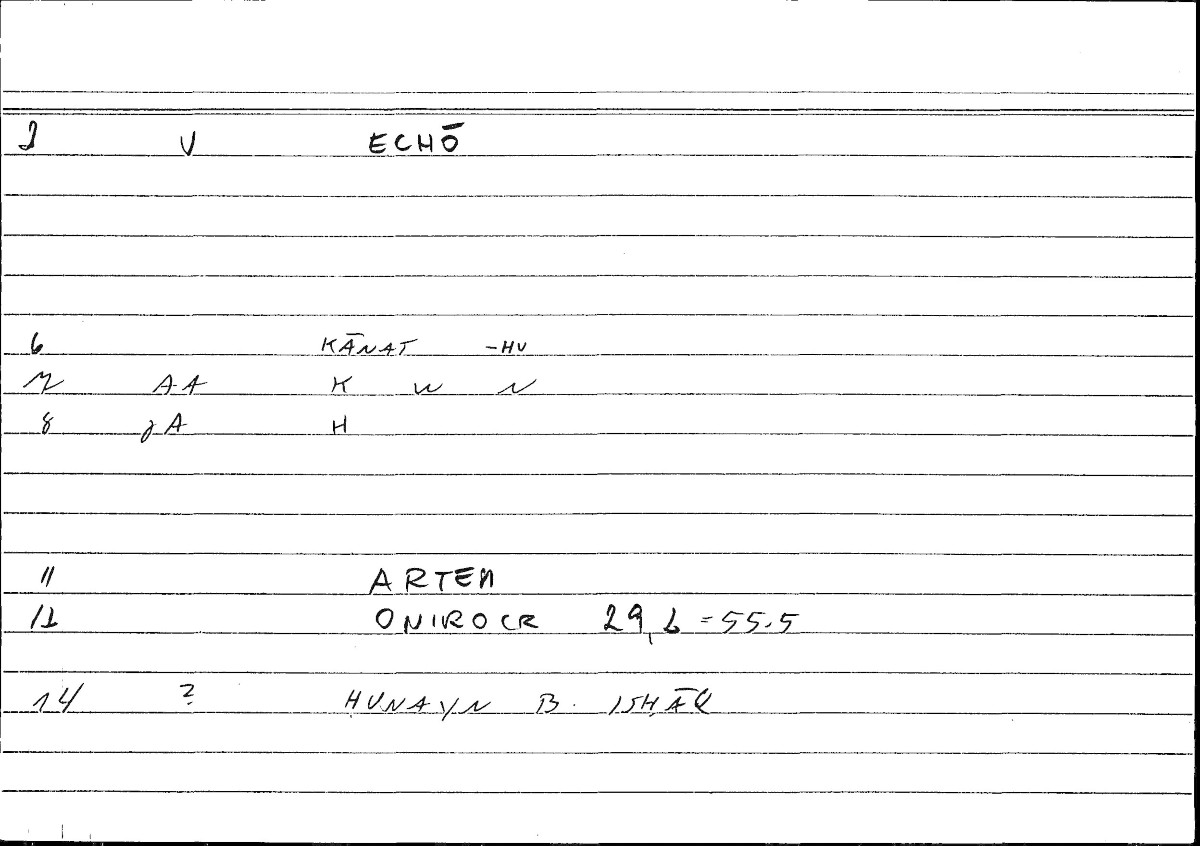 2 V ECHŌ
6 KĀNAT -HU
7 AA K W N
8 gA H
11 ARTEM
12 ONIROCR 29,6 = 55.5
14 ? ḤUNAYN B. ISḤĀQ